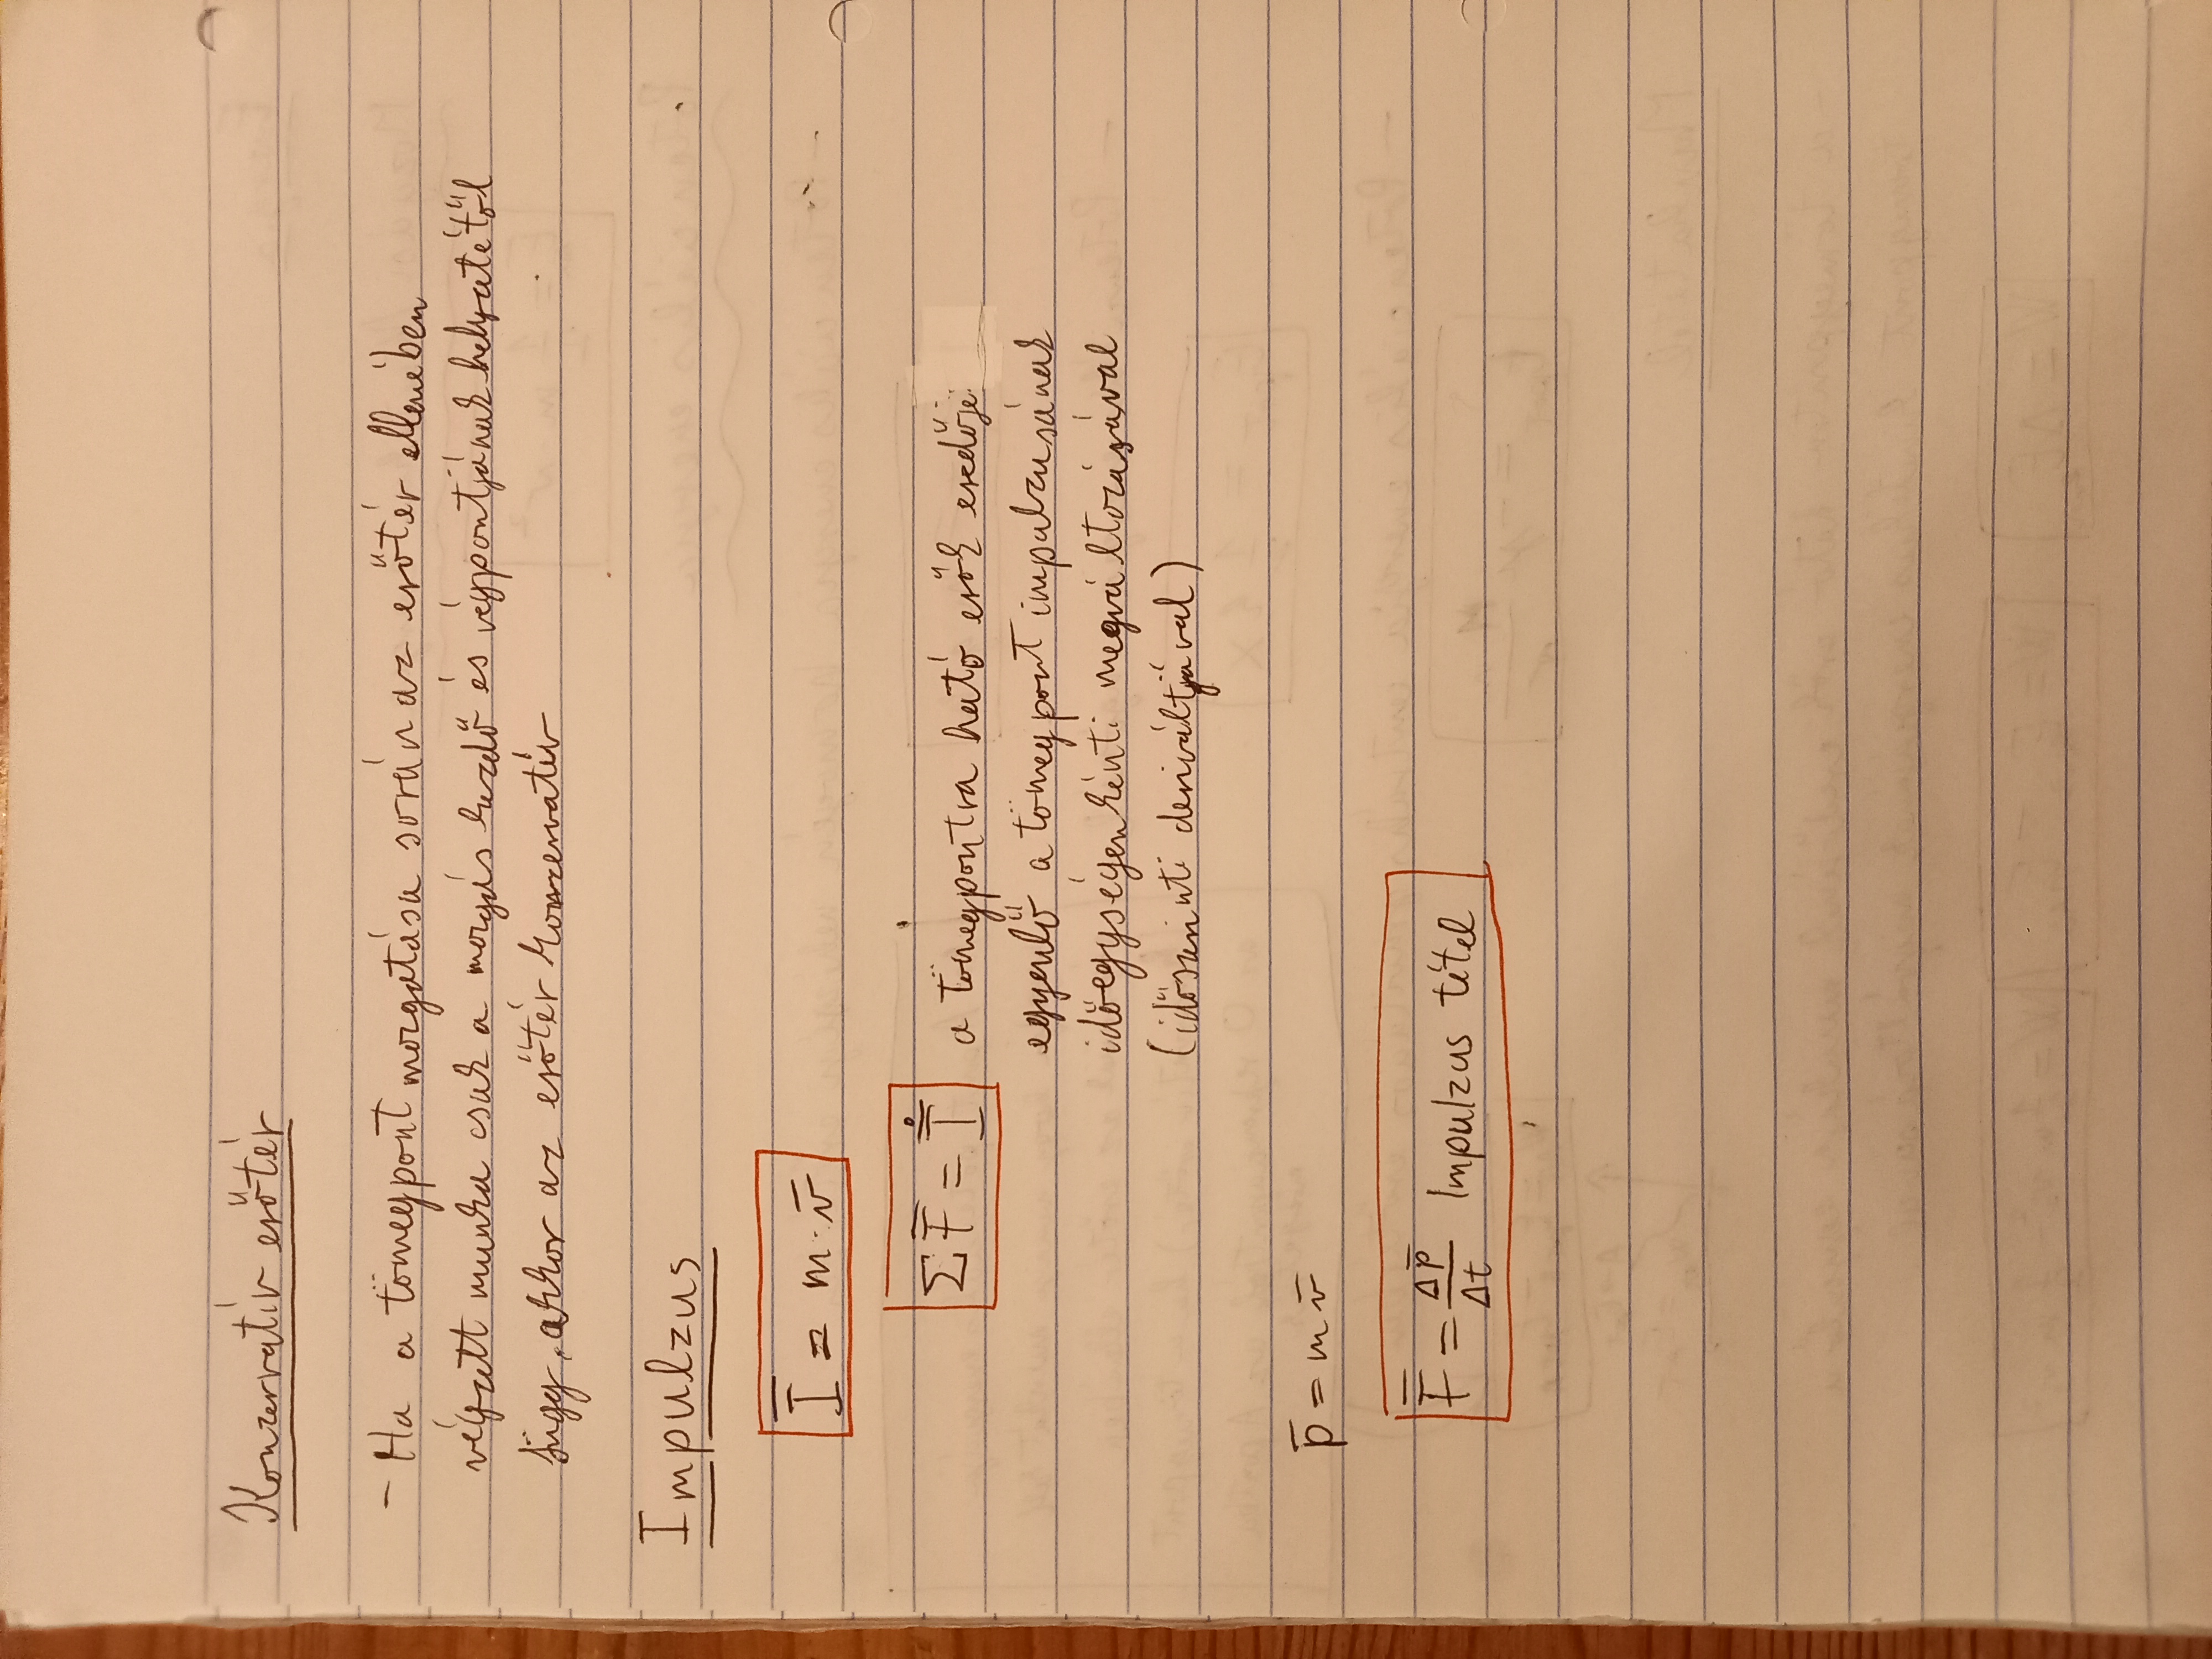 Konzervatív erőtér
- Ha a tömegpont mozgatása során az erőtér ellenében
végzett munka csak a mozgás kezdő és végpontjának helyzetétől
függ, akkor az erőtér konzervatív
Impulzus
I̅ = m · v̅
ΣF̅ = İ̅ a tömegpontra ható erők eredője
egyenlő a tömegpont impulzusának
időegységenkénti megváltozásával
(időszerinti deriváltjával)
p̅ = m v̅
F̅ = Δp̅/Δt Impulzus tétel